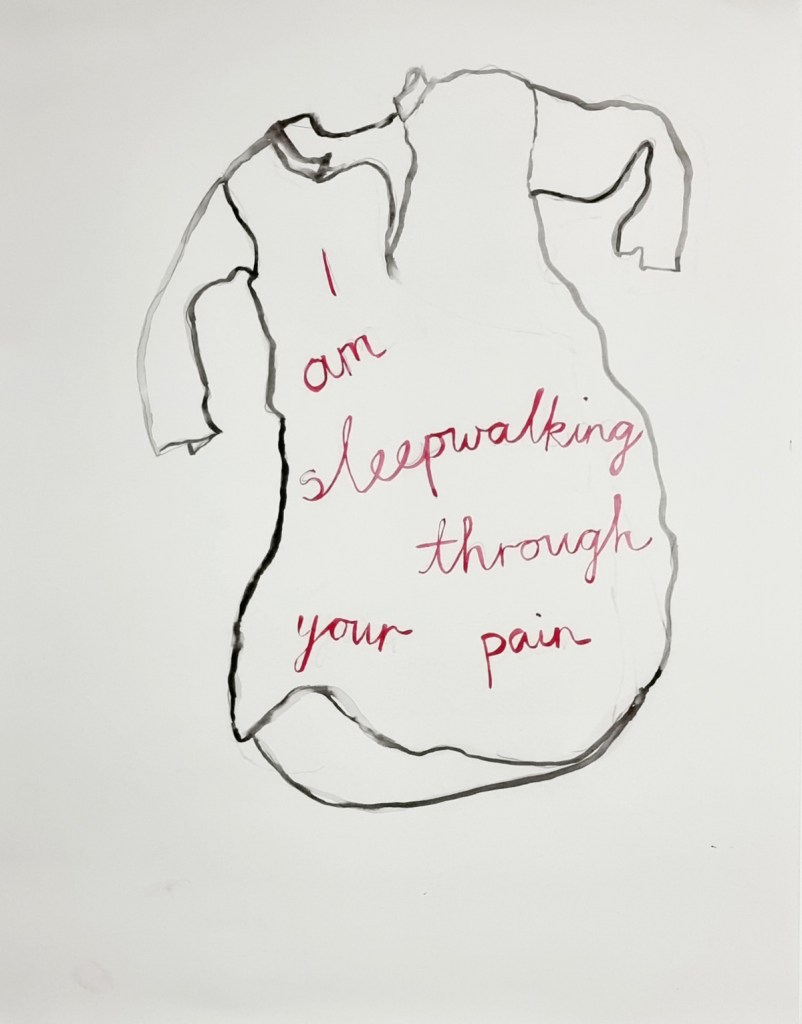 I
am
sleepwalking
through
your pain